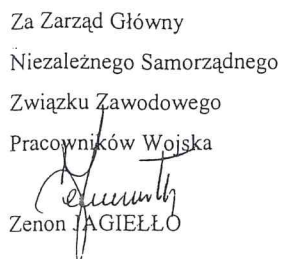 Za Zarząd Główny
Niezależnego Samorządnego
Związku Zawodowego
Pracowników Wojska
Zenon JAGIEŁŁO